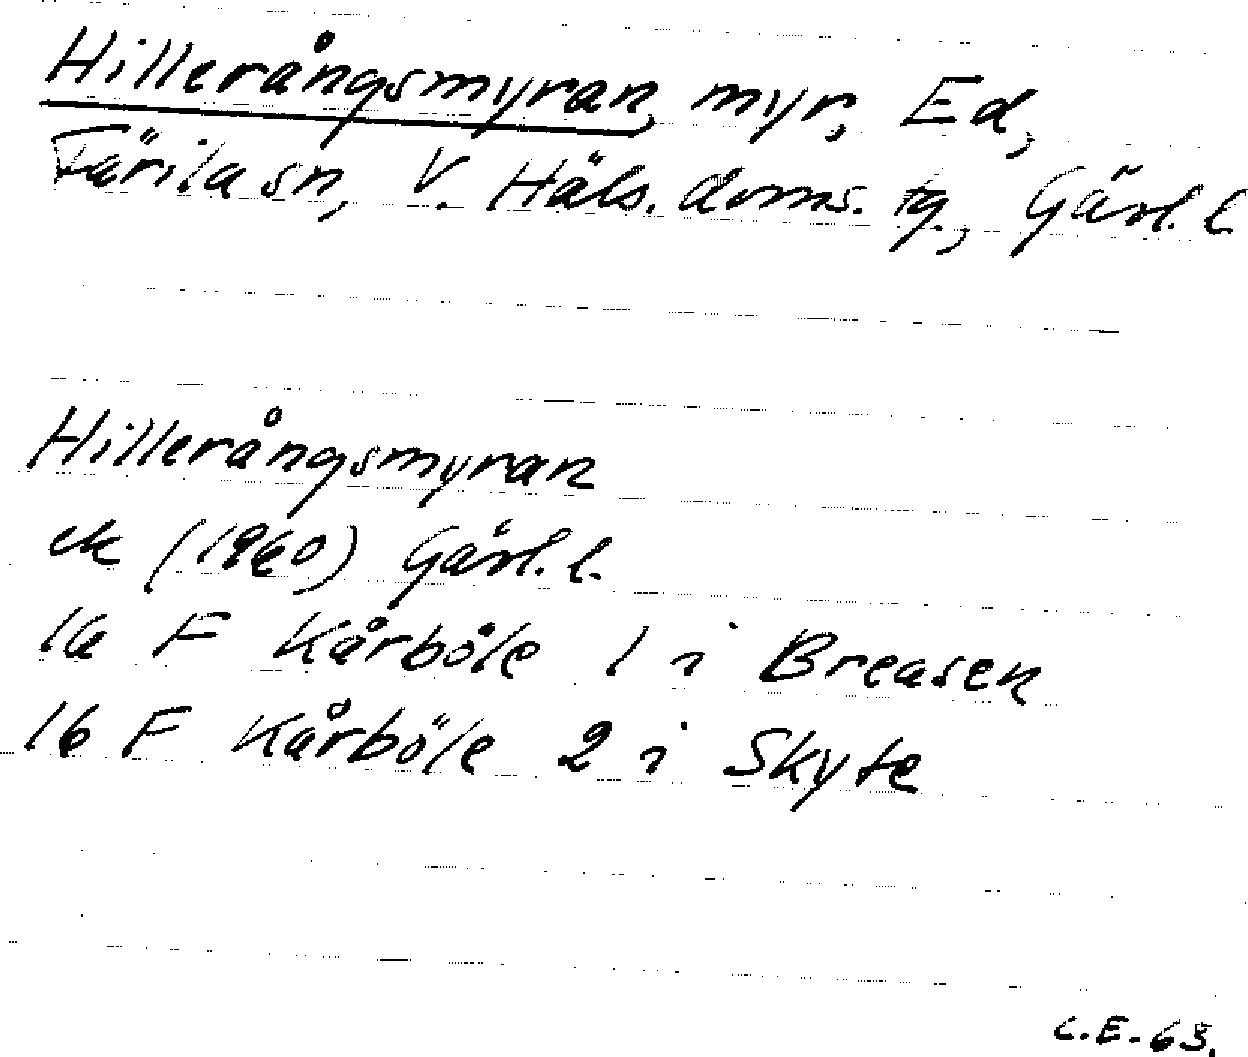 Hillerångsmyran, myr, Ed,
Färila sn, V. Häls. doms. tg., Gävl. l
Hillerångsmyran
ek (1960) Gävl. l.
16 F Kårböle 1 i Breasen
16 F Kårböle 2 i Skyte
C.E. 63.